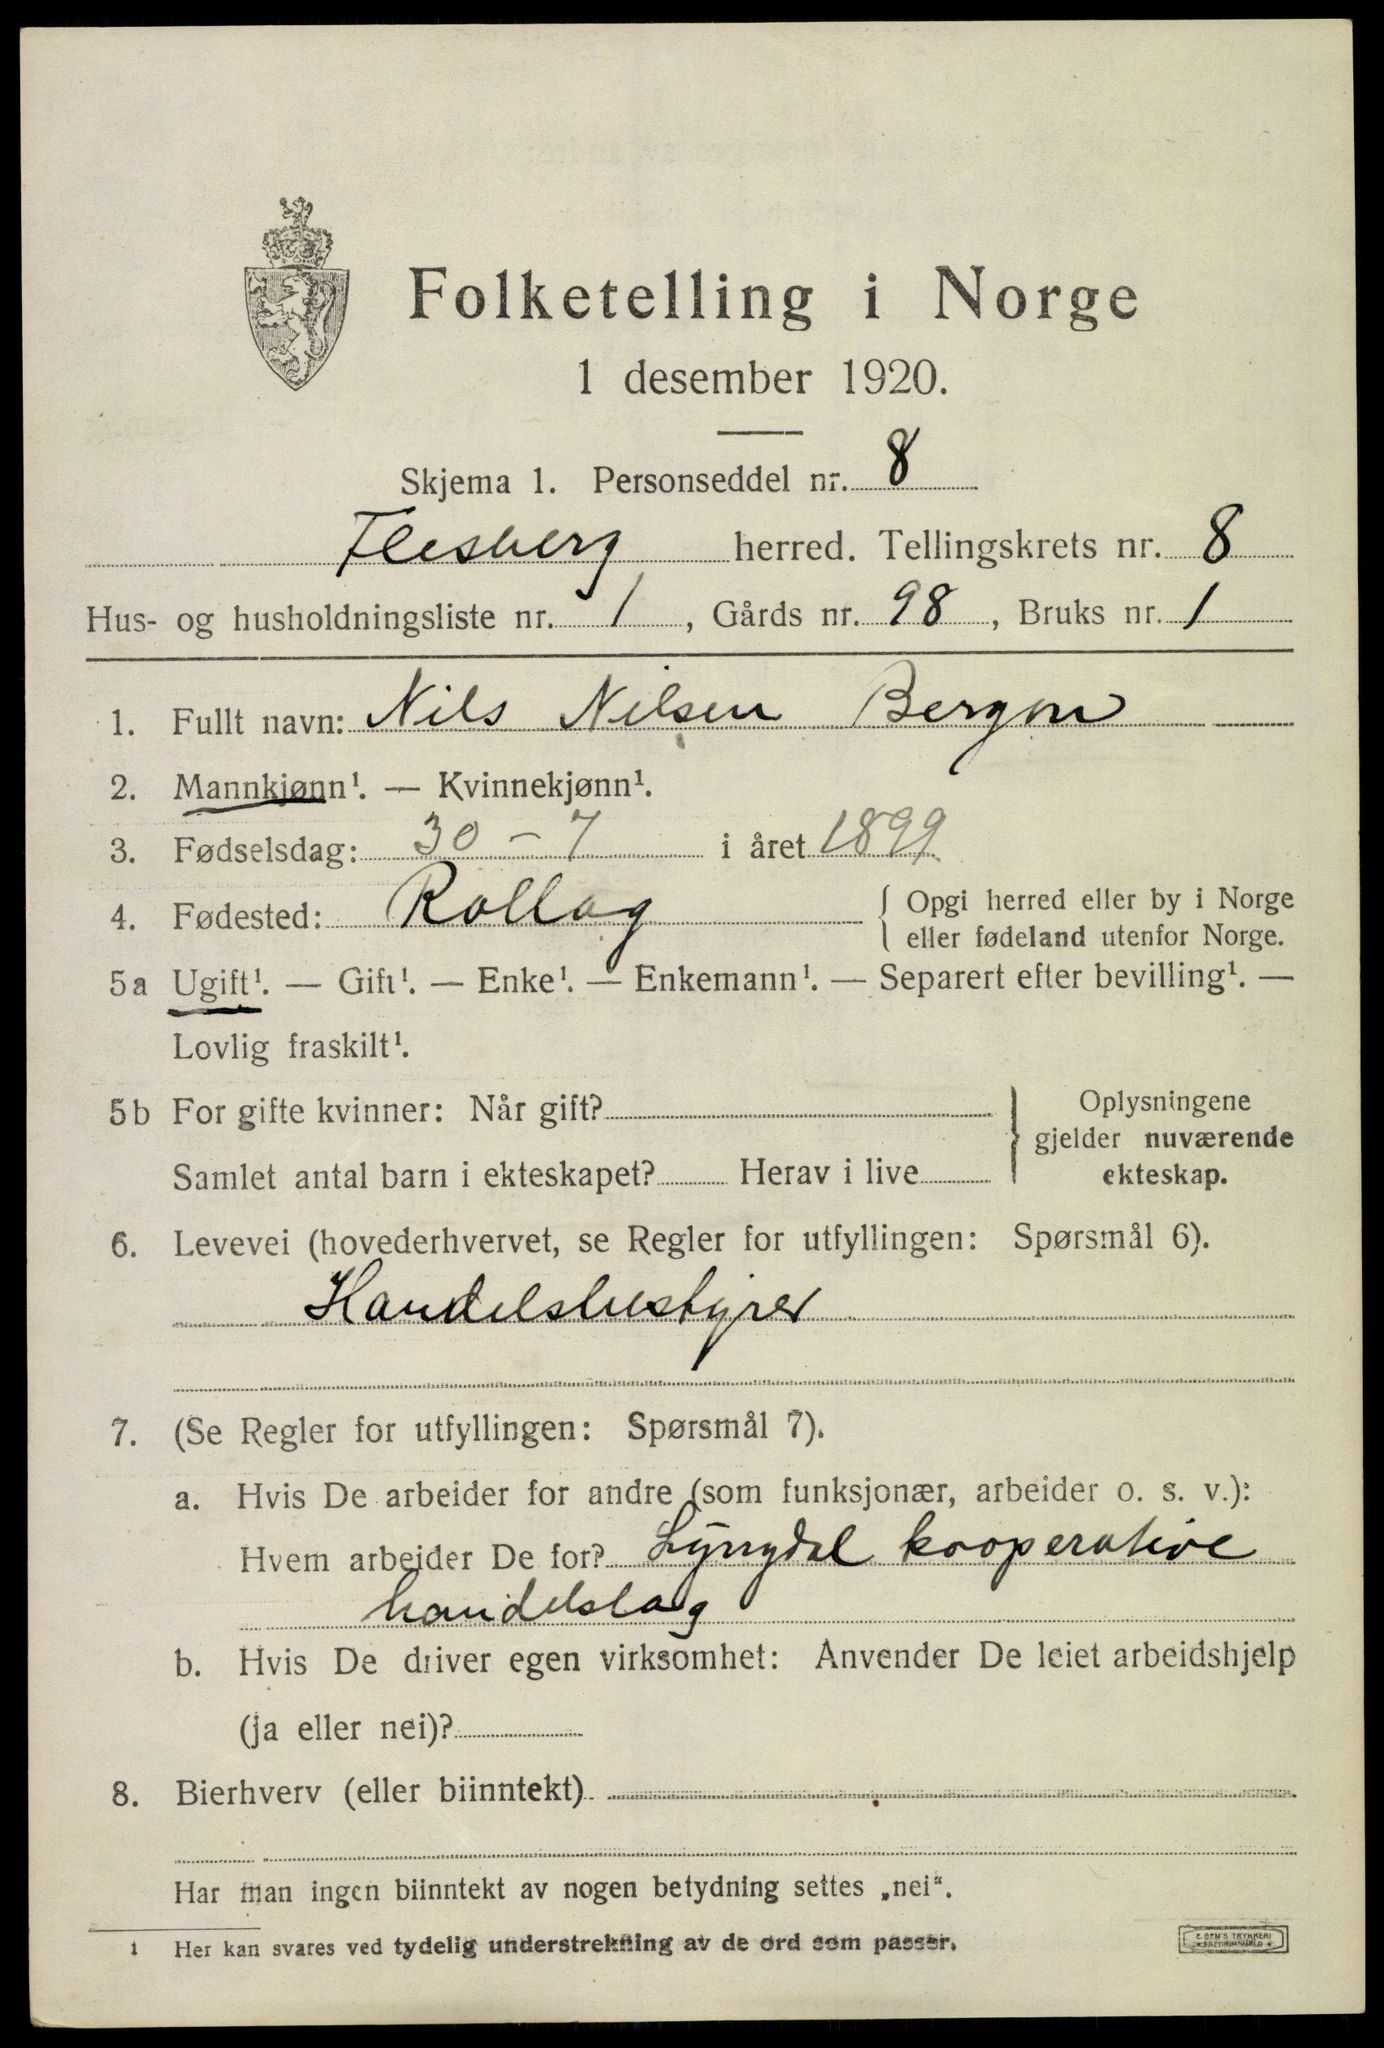 Folketelling i Norge
1 desember 1920.
Skjema 1. Personseddel nr. 8
Flesberg herred. Tellingskrets nr. 8
Hus- og husholdningsliste nr. 1, Gårds nr. 98, Bruks nr. 1
1. Fullt navn: Nils Nilsen Bergon
2. Mannkjønn¹. — Kvinnekjønn¹.
3. Fødselsdag: 30 - 7 i året 1899
4. Fødested: Rollag { Opgi herred eller by i Norge
eller fødeland utenfor Norge.
5a Ugift¹. — Gift¹. — Enke¹. — Enkemann¹. — Separert efter bevilling¹. —
Lovlig fraskilt¹.
5b For gifte kvinner: Når gift? } Oplysningene
gjelder nuværende
Samlet antal barn i ekteskapet? Herav i live ekteskap.
6. Levevei (hovederhvervet, se Regler for utfyllingen: Spørsmål 6).
Handelsbestyrer
7. (Se Regler for utfyllingen: Spørsmål 7).
a. Hvis De arbeider for andre (som funksjonær, arbeider o. s. v.):
Hvem arbeider De for? Lyngdal kooperative
handelslag
b. Hvis De driver egen virksomhet: Anvender De leiet arbeidshjelp
(ja eller nei)?
8. Bierhverv (eller biinntekt)
Har man ingen biinntekt av nogen betydning settes „nei“.
1 Her kan svares ved tydelig understrekning av de ord som passer.
E. SEM'S TRYKKERI
FREDRIKSHALD